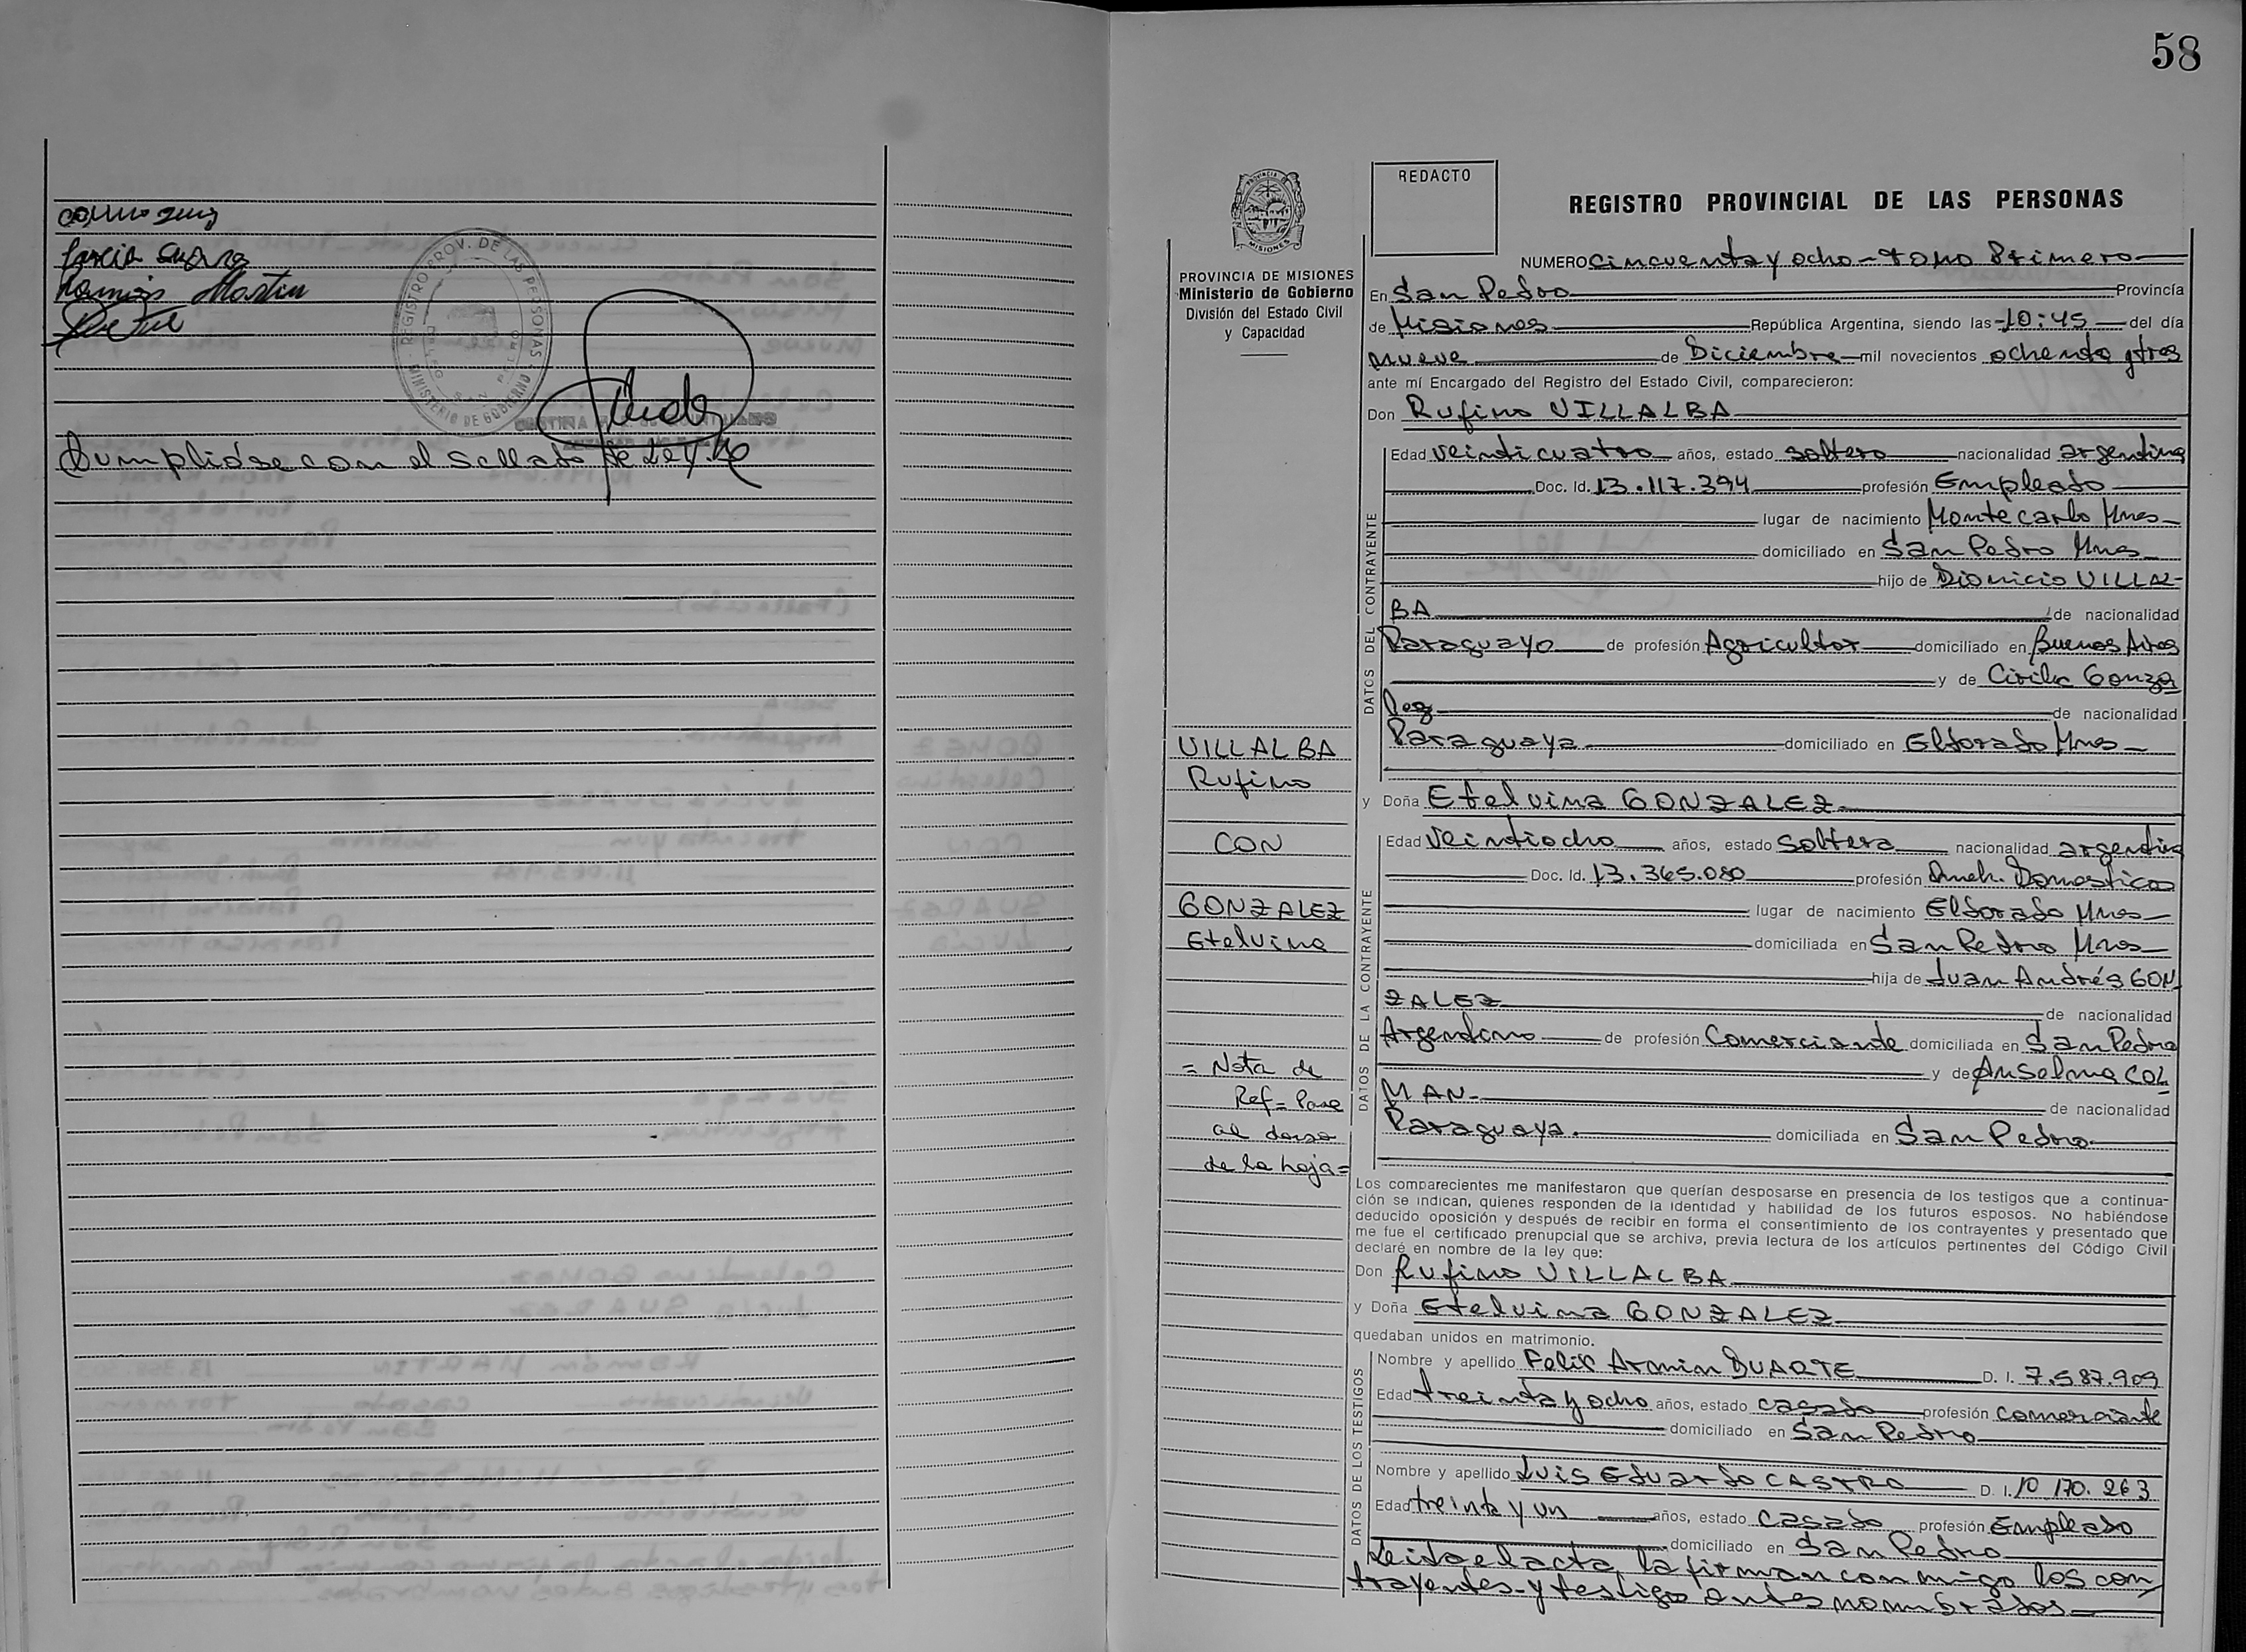 Ramirez Martin
REGISTRO PROV. DE LAS PERSONAS
MINISTERIO DE GOBIERNO
Cumplióse con el sellado de Ley.
58
PROVINCIA DE MISIONES
Ministerio de Gobierno
División del Estado Civil
y Capacidad
VILLALBA
Rufino
CON
GONZALEZ
Etelvina
= Nota de
Ref = Pase
al dorso
de la hoja =
REDACTO
REGISTRO PROVINCIAL DE LAS PERSONAS
NUMERO cincuenta y ocho - tomo Primero
En San Pedro Provincia
de Misiones República Argentina, siendo las 10:45 del día
nueve de Diciembre mil novecientos ochenta y tres
ante mí Encargado del Registro del Estado Civil, comparecieron:
Don Rufino VILLALBA
DATOS DEL CONTRAYENTE
Edad veinticuatro años, estado soltero nacionalidad argentina
Doc. Id. 13.117.394 profesión Empleado
lugar de nacimiento Montecarlo Mnes
domiciliado en San Pedro Mnes
hijo de Dionicio VILLAL-
BA de nacionalidad
Paraguayo de profesión Agricultor domiciliado en Buenos Aires
y de Cirila Gonza
lez de nacionalidad
Paraguaya domiciliado en Eldorado Mnes
y Doña Etelvina GONZALEZ
DATOS DE LA CONTRAYENTE
Edad veintiocho años, estado soltera nacionalidad argentina
Doc. Id. 13.365.080 profesión Queh. Domesticos
lugar de nacimiento Eldorado Mnes
domiciliada en San Pedro Mnes
hija de Juan Andrés GON
ZALEZ de nacionalidad
Argentino de profesión Comerciante domiciliada en San Pedro
y de Anselma COL
MAN- de nacionalidad
Paraguaya. domiciliada en San Pedro
Los comparecientes me manifestaron que querían desposarse en presencia de los testigos que a continua-
ción se indican, quienes responden de la identidad y habilidad de los futuros esposos. No habiéndose
deducido oposición y después de recibir en forma el consentimiento de los contrayentes y presentado que
me fue el certificado prenupcial que se archiva, previa lectura de los artículos pertinentes del Código Civil
declaré en nombre de la ley que:
Don Rufino VILLALBA
y Doña Etelvina GONZALEZ
quedaban unidos en matrimonio.
DATOS DE LOS TESTIGOS
Nombre y apellido Felix Armin DUARTE D. I. 7.587.909
Edad treinta y ocho años, estado casado profesión comerciante
domiciliado en San Pedro
Nombre y apellido Luis Eduardo CASTRO D. I. 10 170. 263
Edad treinta y un años, estado casado profesión Empleado
domiciliado en San Pedro
Leida el acta, la firman conmigo los con
trayentes y testigos antes nombrados